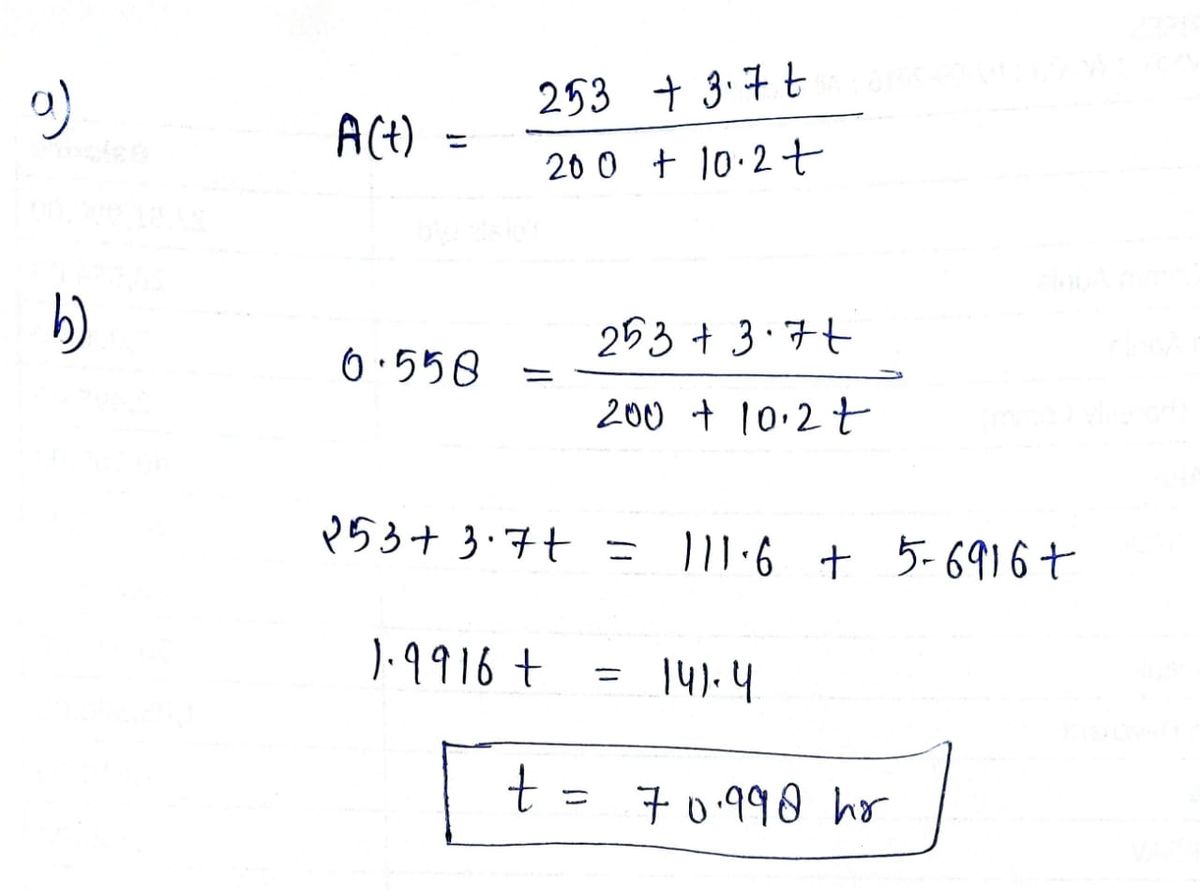 a) A(t) = (253 + 3.7t) / (200 + 10.2t)
b) 0.558 = (253 + 3.7t) / (200 + 10.2t)
253 + 3.7t = 111.6 + 5.6916t
1.9916t = 141.4
t = 70.998 hr